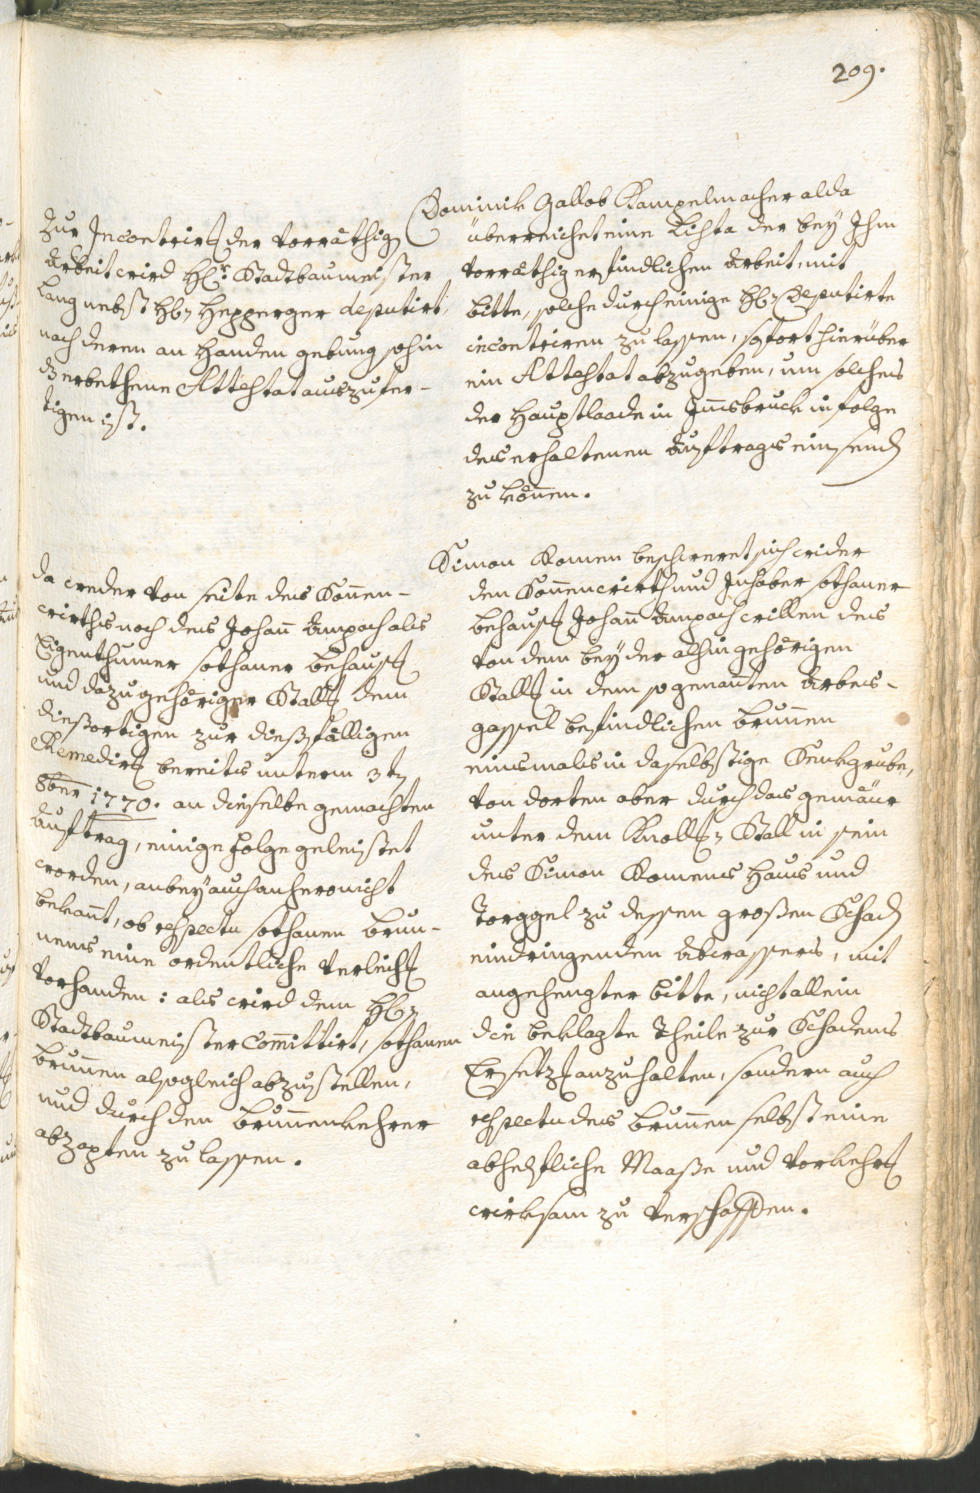 209.
Zur Incontrirg der vorräthig
Arbeit wird H. Stadtbaumeister
Lang nebst H. Hepperger deputirt,
nach deren an Handen gebung sohin
dz erbethene Attestat auszufer-
tigen ist.
Dominik Gallob Kampelmacher alda
überreichet eine Lista der bey Ihm
vorräthig erfindlichen Arbeit, mit
bitte, solche durch einige H. Deputirte
incontriren zu lassen, sofort hierüber
ein Attestat abzugeben, um solches
der Hauptlaade in Innsbruck in folge
des erhaltenen Auftrags einsend
zu können.
da weder von seite des Sonnen-
wirths noch des Johann Ampach als
Eigenthumer sothaner behausg
und dazu gehöriger Stallg dem
dießortigen zur dießfälligen
Remedirg bereits unterm 3t
8ber 1770. an dieselbe gemachten
Auftrag, einige folge geleistet
worden, anbey auch anhero nicht
bekannt, ob respectu sothanen brun-
nens eine ordentliche Verleichg
vorhanden: als wird dem H.
Stadtbaumeister Committirt, sothanen
brunnen alsogleich abzustellen,
und durch den brunnenkehrer
abzapfen zu lassen.
Simon Romen beschweret sich wider
den Sonnenwirth und Inhaber sothaner
behausg Johann Ampach willen des
von dem bey der alhin gehörigen
Stallg in dem sogenannten Arbeis-
gassel befindlichen brunnen
einsmals in daselbstige Senkgrube,
von dorten aber durch das gemäür
unter dem Stall in sein
des Simon Romens Haus und
Torggel zu dessen großen Schad
eindringenden Abwassers, mit
angehengter bitte, nicht allein
die beklagte Theile zur Schadens
Ersetzg anzuhalten, sondern auch
respectu des brunnen selbst eine
abhelfliche Maaße und Vorkehrg
wirksam zu verschaffen.